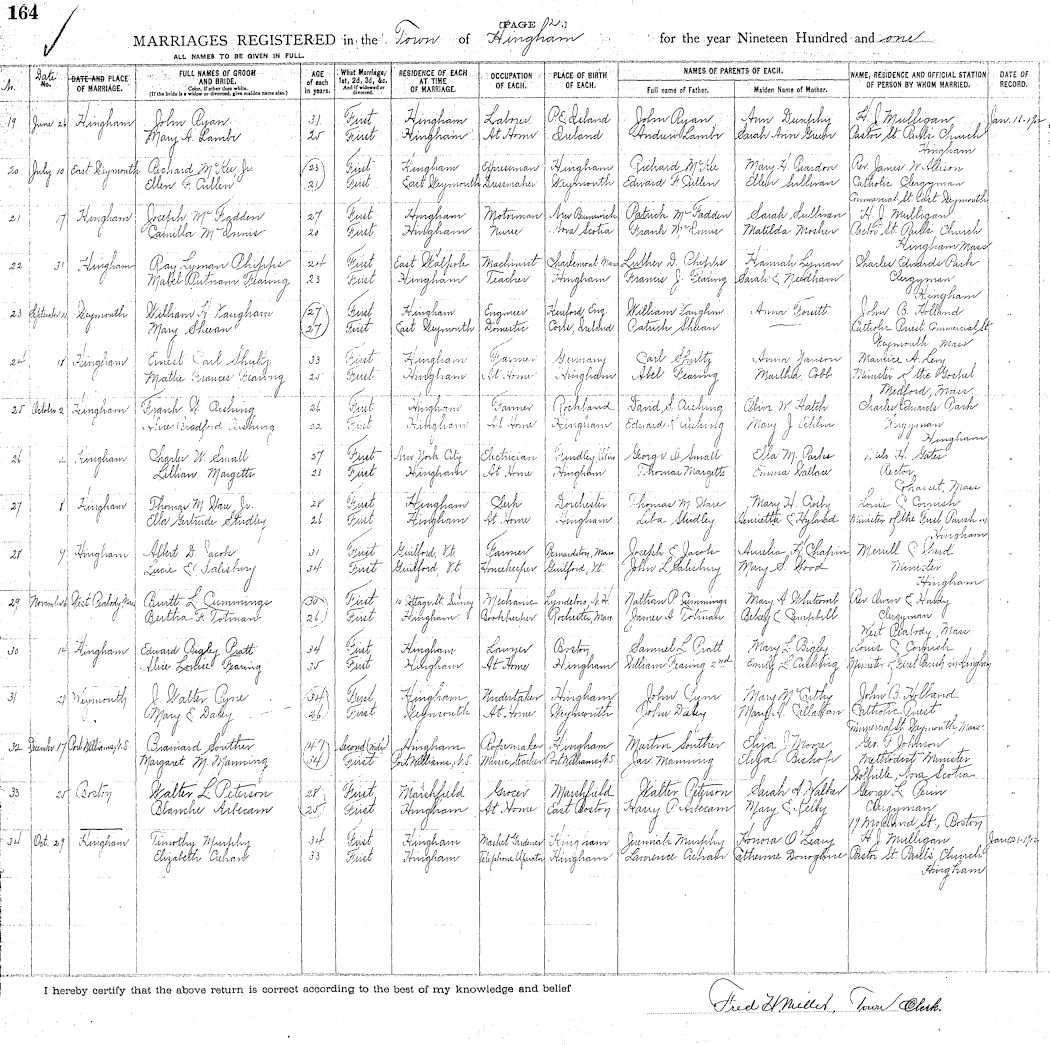 164
[PAGE 12.]
MARRIAGES REGISTERED in the Town of Hingham for the year Nineteen Hundred and one
ALL NAMES TO BE GIVEN IN FULL.
No. Date No. DATE AND PLACE OF MARRIAGE. FULL NAMES OF GROOM AND BRIDE. Color, if other than white. (If the bride is a widow or divorced, give maiden name also.) AGE of each in years. What Marriage, 1st, 2d, 3d, &c. And if widowed or divorced. RESIDENCE OF EACH AT TIME OF MARRIAGE. OCCUPATION OF EACH. PLACE OF BIRTH OF EACH. NAMES OF PARENTS OF EACH. Full name of Father. Maiden Name of Mother. NAME, RESIDENCE AND OFFICIAL STATION OF PERSON BY WHOM MARRIED. DATE OF RECORD.
19 June 26 Hingham John Ryan 31 First Hingham Laborer P.E. Island John Ryan Ann Dunphy H. J. Mulligan Jan. 11-1902
Mary A. Lambe 25 First Hingham At Home Ireland Andrew Lambe Sarah Ann Green Pastor St. Paul's Church
Hingham
20 July 10 East Weymouth Richard McKee Jr. 23 First Hingham Expressman Hingham Richard McKee Mary H. Reardon Rev. James W. Allison
Ellen F. Cullen 21 First East Weymouth Dressmaker Weymouth Edward F. Cullen Ellen Sullivan Catholic Clergyman
Commercial St. East Weymouth
21 17 Hingham Joseph McFadden 27 First Hingham Motorman New Brunswick Patrick McFadden Sarah Sullivan H. J. Mulligan
Camilla McInnis 20 First Hingham Nurse Nova Scotia Frank McInnis Matilda Mosher Pastor St. Paul's Church
Hingham Mass
22 31 Hingham Ray Lyman Phipps 24 First East Walpole Machinist Charlemont Mass Luther D. Phipps Hannah Lyman Charles Edwards Park
Mabel Putnam Fearing 23 First Hingham Teacher Hingham Francis J. Fearing Sarah E. Needham Clergyman
Hingham
23 September 11 Weymouth William H. Vaughan 27 First Hingham Engineer Hereford, Eng. William Vaughn Anna John B. Holland
Mary Sheean 27 First East Weymouth Domestic Cork, Ireland Patrick Sheean Catholic Priest Commercial St
Weymouth Mass
24 18 Hingham Ernest Carl Shultz 33 First Hingham Farmer Germany Carl Shultz Anna Maurice A. Levy
Mattie Frances Fearing 25 First Hingham At Home Hingham Abel Fearing Martha Cobb Minister of the Gospel
Medford, Mass
25 October 2 Hingham Frank W. Cushing 26 First Hingham Farmer Rockland David S. Cushing Olive W. Hatch Charles Edwards Park
Alice Bradford Cushing 22 First Hingham At Home Hingham Edward Cushing Mary J. Clergyman
Hingham
26 2 Hingham Charles W. Small 37 First New York City Electrician Findley Ohio George Small Ella M. Parks H. Gates
Lillian Margetts 23 First Hingham At Home Hingham Thomas Margetts Emma Wallace Rector
Cohasset, Mass
27 8 Hingham Thomas M. Hare Jr. 28 First Hingham Clerk Dorchester Thomas M. Hare Mary H. Crosby Louis C. Cornish
Ella Gertrude Studley 26 First Hingham At Home Hingham Studley Henrietta C. Hyland Minister of the First Parish in
Hingham
28 9 Hingham Albert D. Jacob 31 First Guilford, Vt. Farmer Bernardston, Mass Joseph E. Jacob Aurelia H. Chapin Merrill C. Ward
Lucie E. Salisbury 34 First Guilford, Vt. Housekeeper Guilford, Vt. John L. Salisbury Mary S. Wood Minister
Hingham
29 November 6 West Peabody, Mass Burtt L. Cummings 30 First Cottage St. Quincy Mechanic Lyndeboro, N.H. Nathan P. Cummings Mary A. Whitcomb Rev Owen E.
Bertha F. Totman 26 First Hingham Bookkeeper Rochester, Mass James A. Totman Betsy C. Campbell Clergyman
West Peabody, Mass
30 14 Hingham Edward Bigley Pratt 34 First Hingham Lawyer Boston Samuel L. Pratt Mary L. Bigley Louis C. Cornish
Alice Louise Fearing 35 First Hingham At Home Hingham William Fearing 2nd Emily L. Cushing Minister of First Parish in Hingham
31 21 Weymouth J. Walter Pyne 34 First Hingham Undertaker Hingham John Pyne Mary McCarthy John B. Holland
Mary E. Daley 26 First Weymouth At Home Weymouth John Daley Mary A. Callahan Catholic Priest
Commercial St Weymouth, Mass.
32 December 17 Port Williams, N.S. Brainard Souther 47 Second (Wid.) Hingham Ropemaker Hingham Martin Souther Eliza J. Moore Geo. F. Johnson
Margaret M. Manning 34 First Port Williams, N.S. Music Teacher Port Williams, N.S. Jas Manning Eliza Bishop Methodist Minister
Wolfville, Nova Scotia
33 25 Boston Walter L. Peterson 28 First Marshfield Grocer Marshfield Walter Peterson Sarah A. George L. Perin
Blanche Arbecam 25 First Hingham At Home East Boston Harry P. Arbecam Mary E. Clergyman
19 Moreland St., Boston
34 Oct. 29 Hingham Timothy Murphy 34 First Hingham Market Gardener Hingham Jeremiah Murphy Honora O'Leary H. J. Mulligan Jan 21-1902
Elizabeth Crehan 33 First Hingham Telephone Operator Hingham Lawrence Crehan Catherine Donoghue Pastor St. Paul's Church
Hingham
I hereby certify that the above return is correct according to the best of my knowledge and belief
Fred H. Miller, Town Clerk.